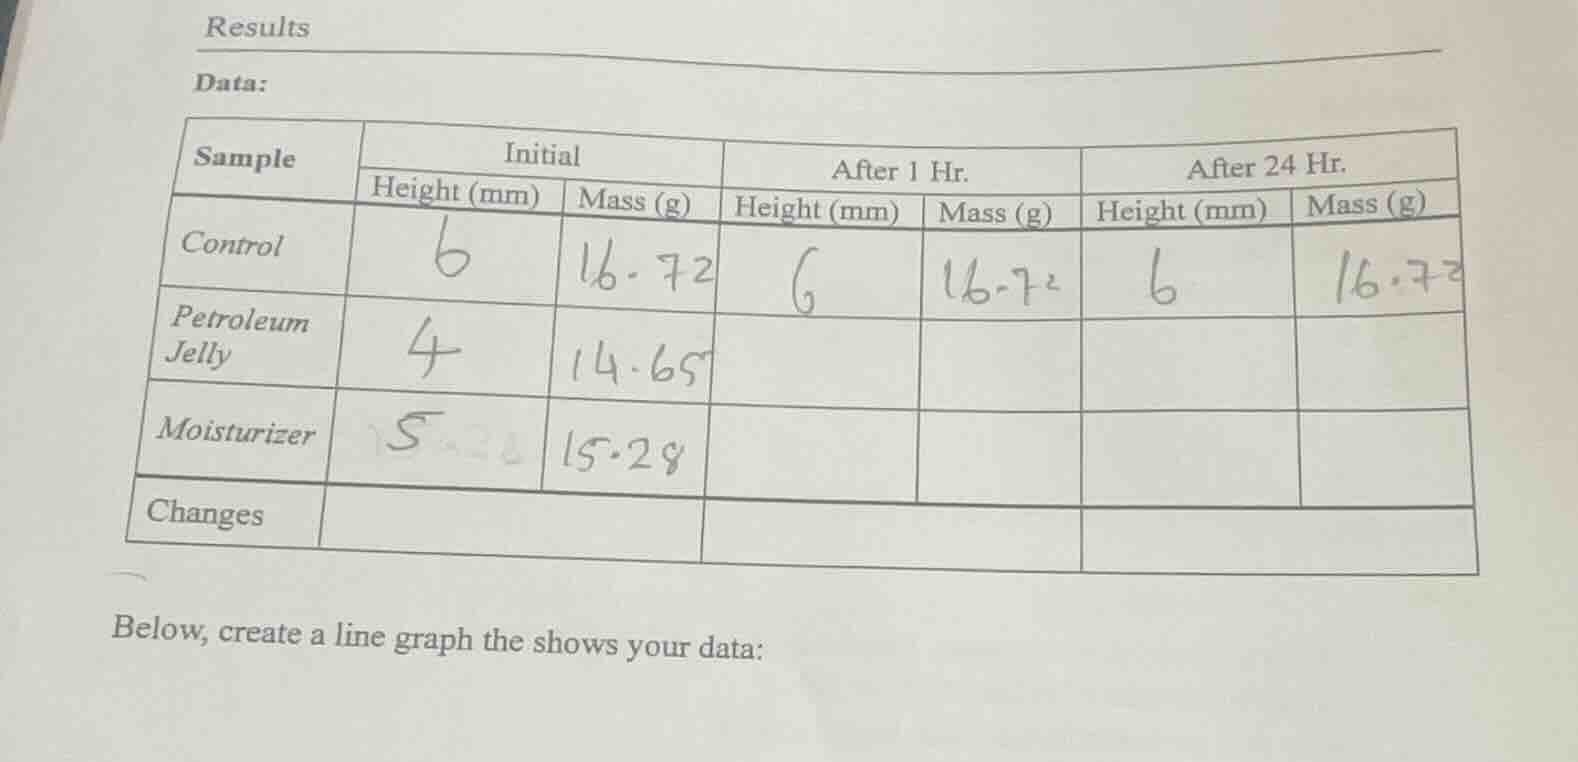 Results
Data:
Sample Initial After 1 Hr. After 24 Hr.
Height (mm) Mass (g) Height (mm) Mass (g) Height (mm) Mass (g)
Control 6 16.72 6 16.72 6 16.72
Petroleum
Jelly 4 14.65
Moisturizer 5 15.28
Changes
Below, create a line graph the shows your data: